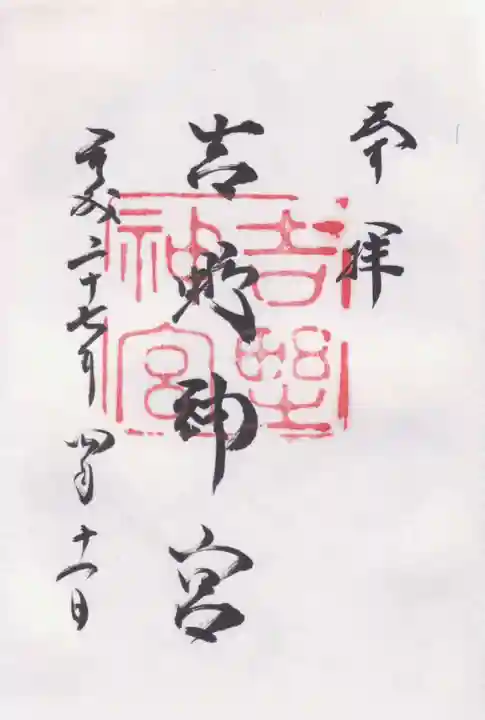 奉拝
吉野神宮
平成二十七年四月十一日
吉野
神宮